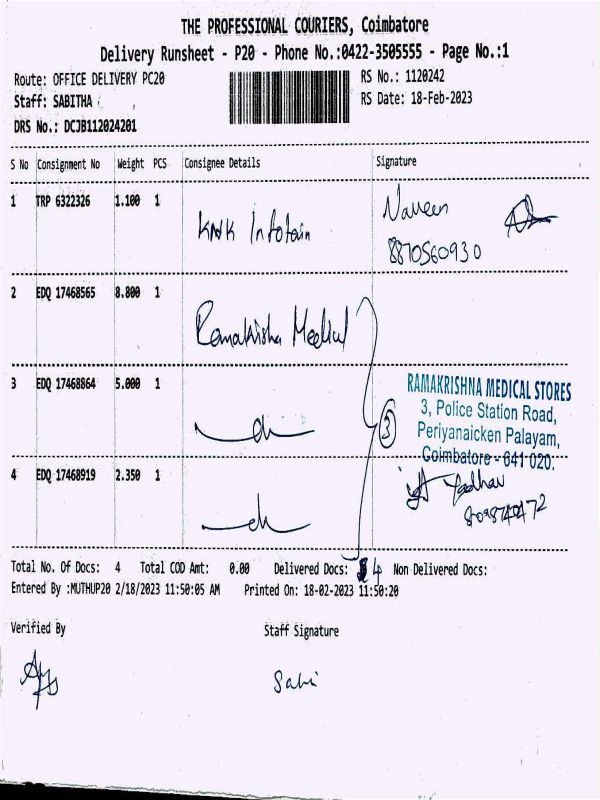 THE PROFESSIONAL COURIERS, Coimbatore
Delivery Runsheet - P20 - Phone No.:0422-3505555 - Page No.:1
Route: OFFICE DELIVERY PC20 RS No.: 1120242
Staff: SABITHA RS Date: 18-Feb-2023
DRS No.: DCJB112024201
S No Consignment No Weight PCS Consignee Details Signature
1 TRP 6322326 1.100 1 KNK Infotain Naveen
8870560930
2 EDQ 17468565 8.800 1 Ramakrisha Medical
3 EDQ 17468864 5.000 1 do 3
RAMAKRISHNA MEDICAL STORES
3, Police Station Road,
Periyanaicken Palayam,
Coimbatore - 641 020.
4 EDQ 17468919 2.350 1 do
Total No. Of Docs: 4 Total COD Amt: 0.00 Delivered Docs: 4 Non Delivered Docs:
Entered By :MUTHUP20 2/18/2023 11:50:05 AM Printed On: 18-02-2023 11:50:20
Verified By Staff Signature
Sabi